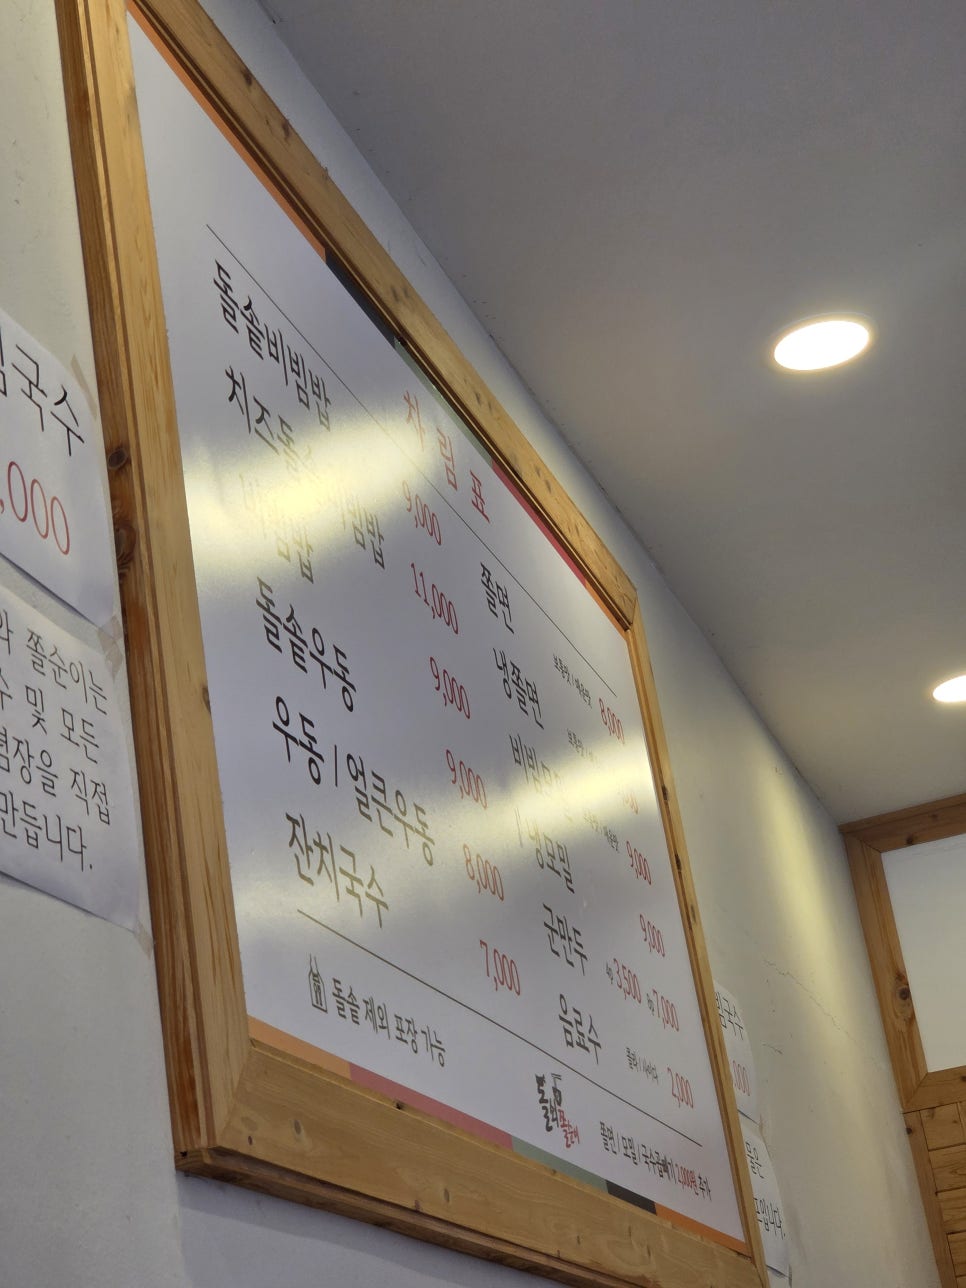 차림표
돌솥비빔밥 9,000
치즈돌솥비빔밥 11,000
비빔밥 9,000
돌솥우동 9,000
우동 / 얼큰우동 8,000
잔치국수 7,000
쫄면 보통맛 / 매운맛 8,000
냉쫄면
비빔모밀 9,000
냉모밀 9,000
군만두 4p 3,500 8p 7,000
음료수 콜라 / 사이다 2,000
돌솥 제외 포장 가능
쫄면 / 모밀 / 국수곱빼기 2,000원 추가
국수
,000
쫄순이는
및 모든
장을 직접
만듭니다.
국수